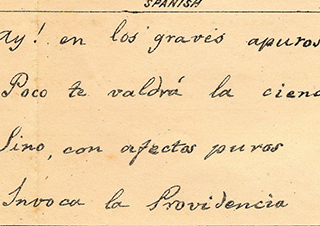 SPANISH
Ay! en los graves apuros
Poco te valdrá la cienc
Sino, con afectos puros
Invoca la Providencia